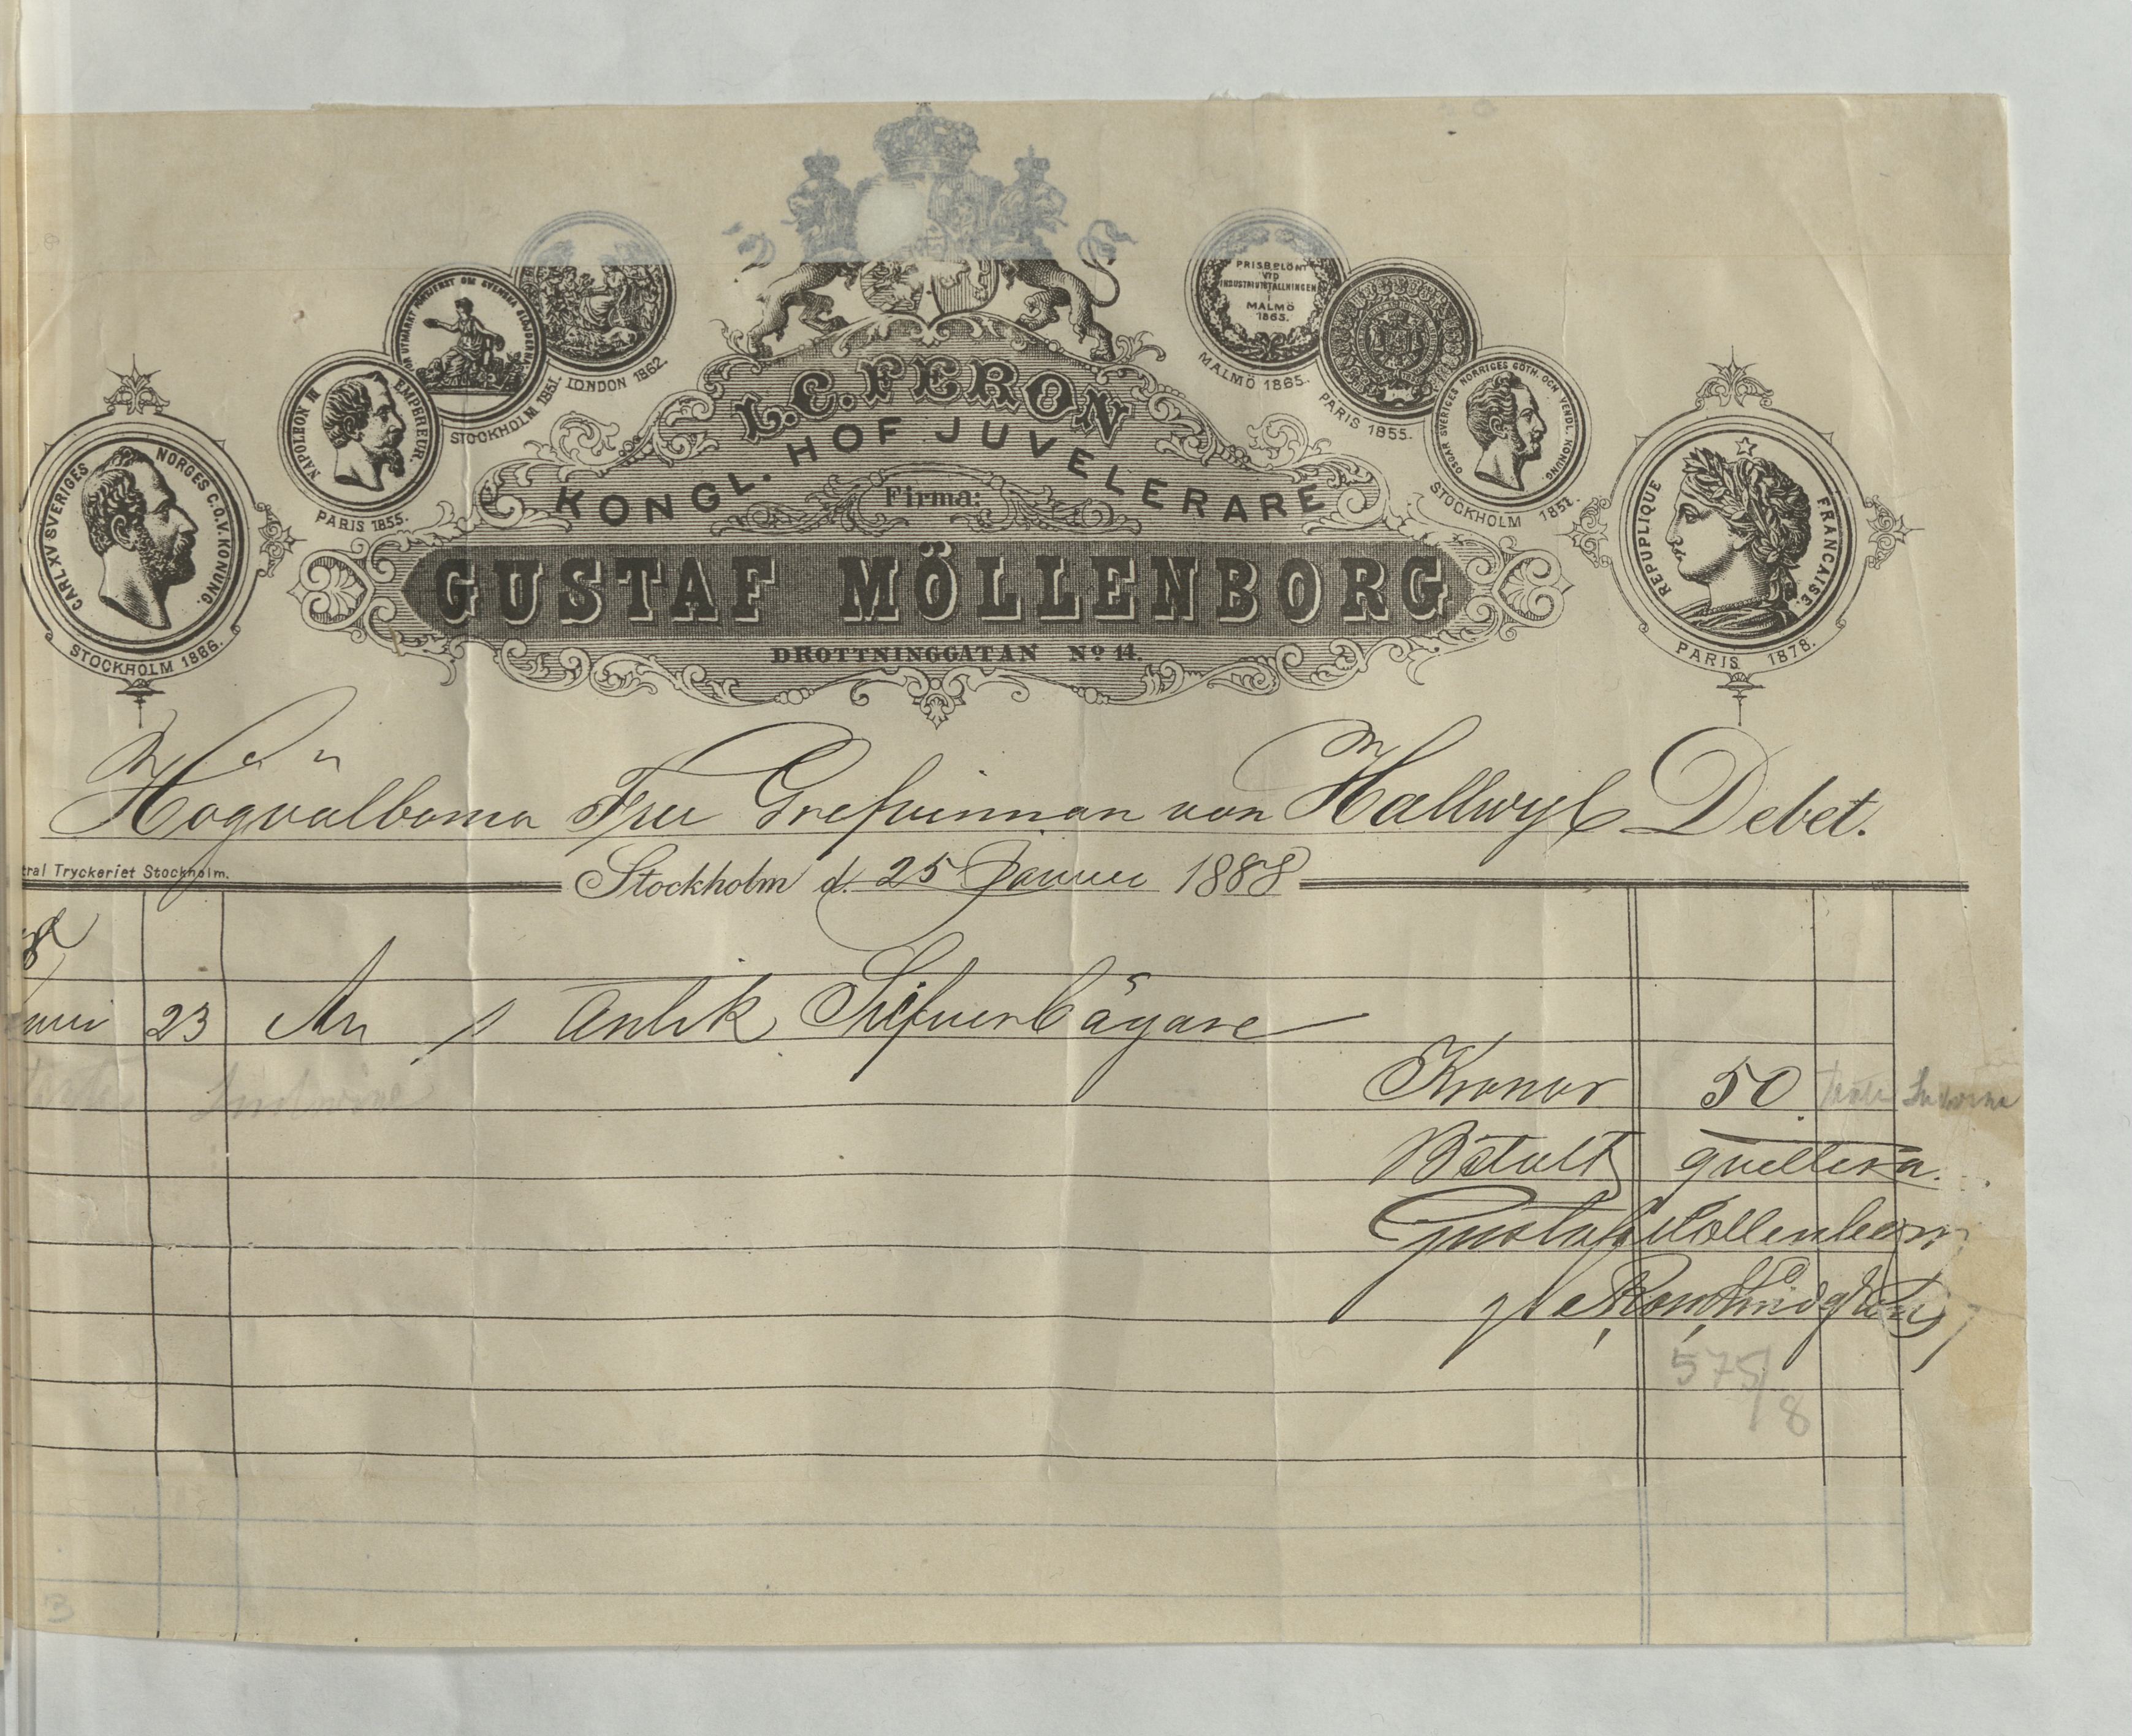 PRISBELÖNT
VID
INDUSTRIUTSTÄLLNINGEN
I
MALMÖ
1865.
FÖR UTMÄRKT FÖRTJENST OM SVENSKA SLÖJDERNA
LONDON 1862.
MALMÖ 1865.
STOCKHOLM 1851.
PARIS 1855.
NAPOLEON III EMPEREUR.
OSCAR SVERIGES NORRIGES GÖTH. OCH VENDL. KONUNG
PARIS 1855.
STOCKHOLM 1851.
L. C. FERON
KONGL. HOF JUVELERARE
Firma:
GUSTAF MÖLLENBORG
DROTTNINGGATAN No 11.
CARL XV SVERIGES NORGES G.O.V. KONUNG.
STOCKHOLM 1866.
REPUPLIQUE FRANCAISE.
PARIS 1878.
Högvälborna Fru Grefvinnan von Hallwyl Debet.
tral Tryckeriet Stockholm.
Stockholm d. 25 Januari 1888
23 An 1 Antik Silfverbägare
Kronor 50
Betalt qvitteras
Gustaf Möllenborg
575/8
3